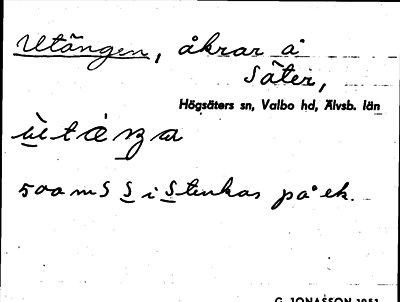 Utängen, åkrar å
Säter,
Högsäters sn, Valbo hd, Älvsb. län
500 m S S i Stenkas på ek.
G. JONASSON 1951